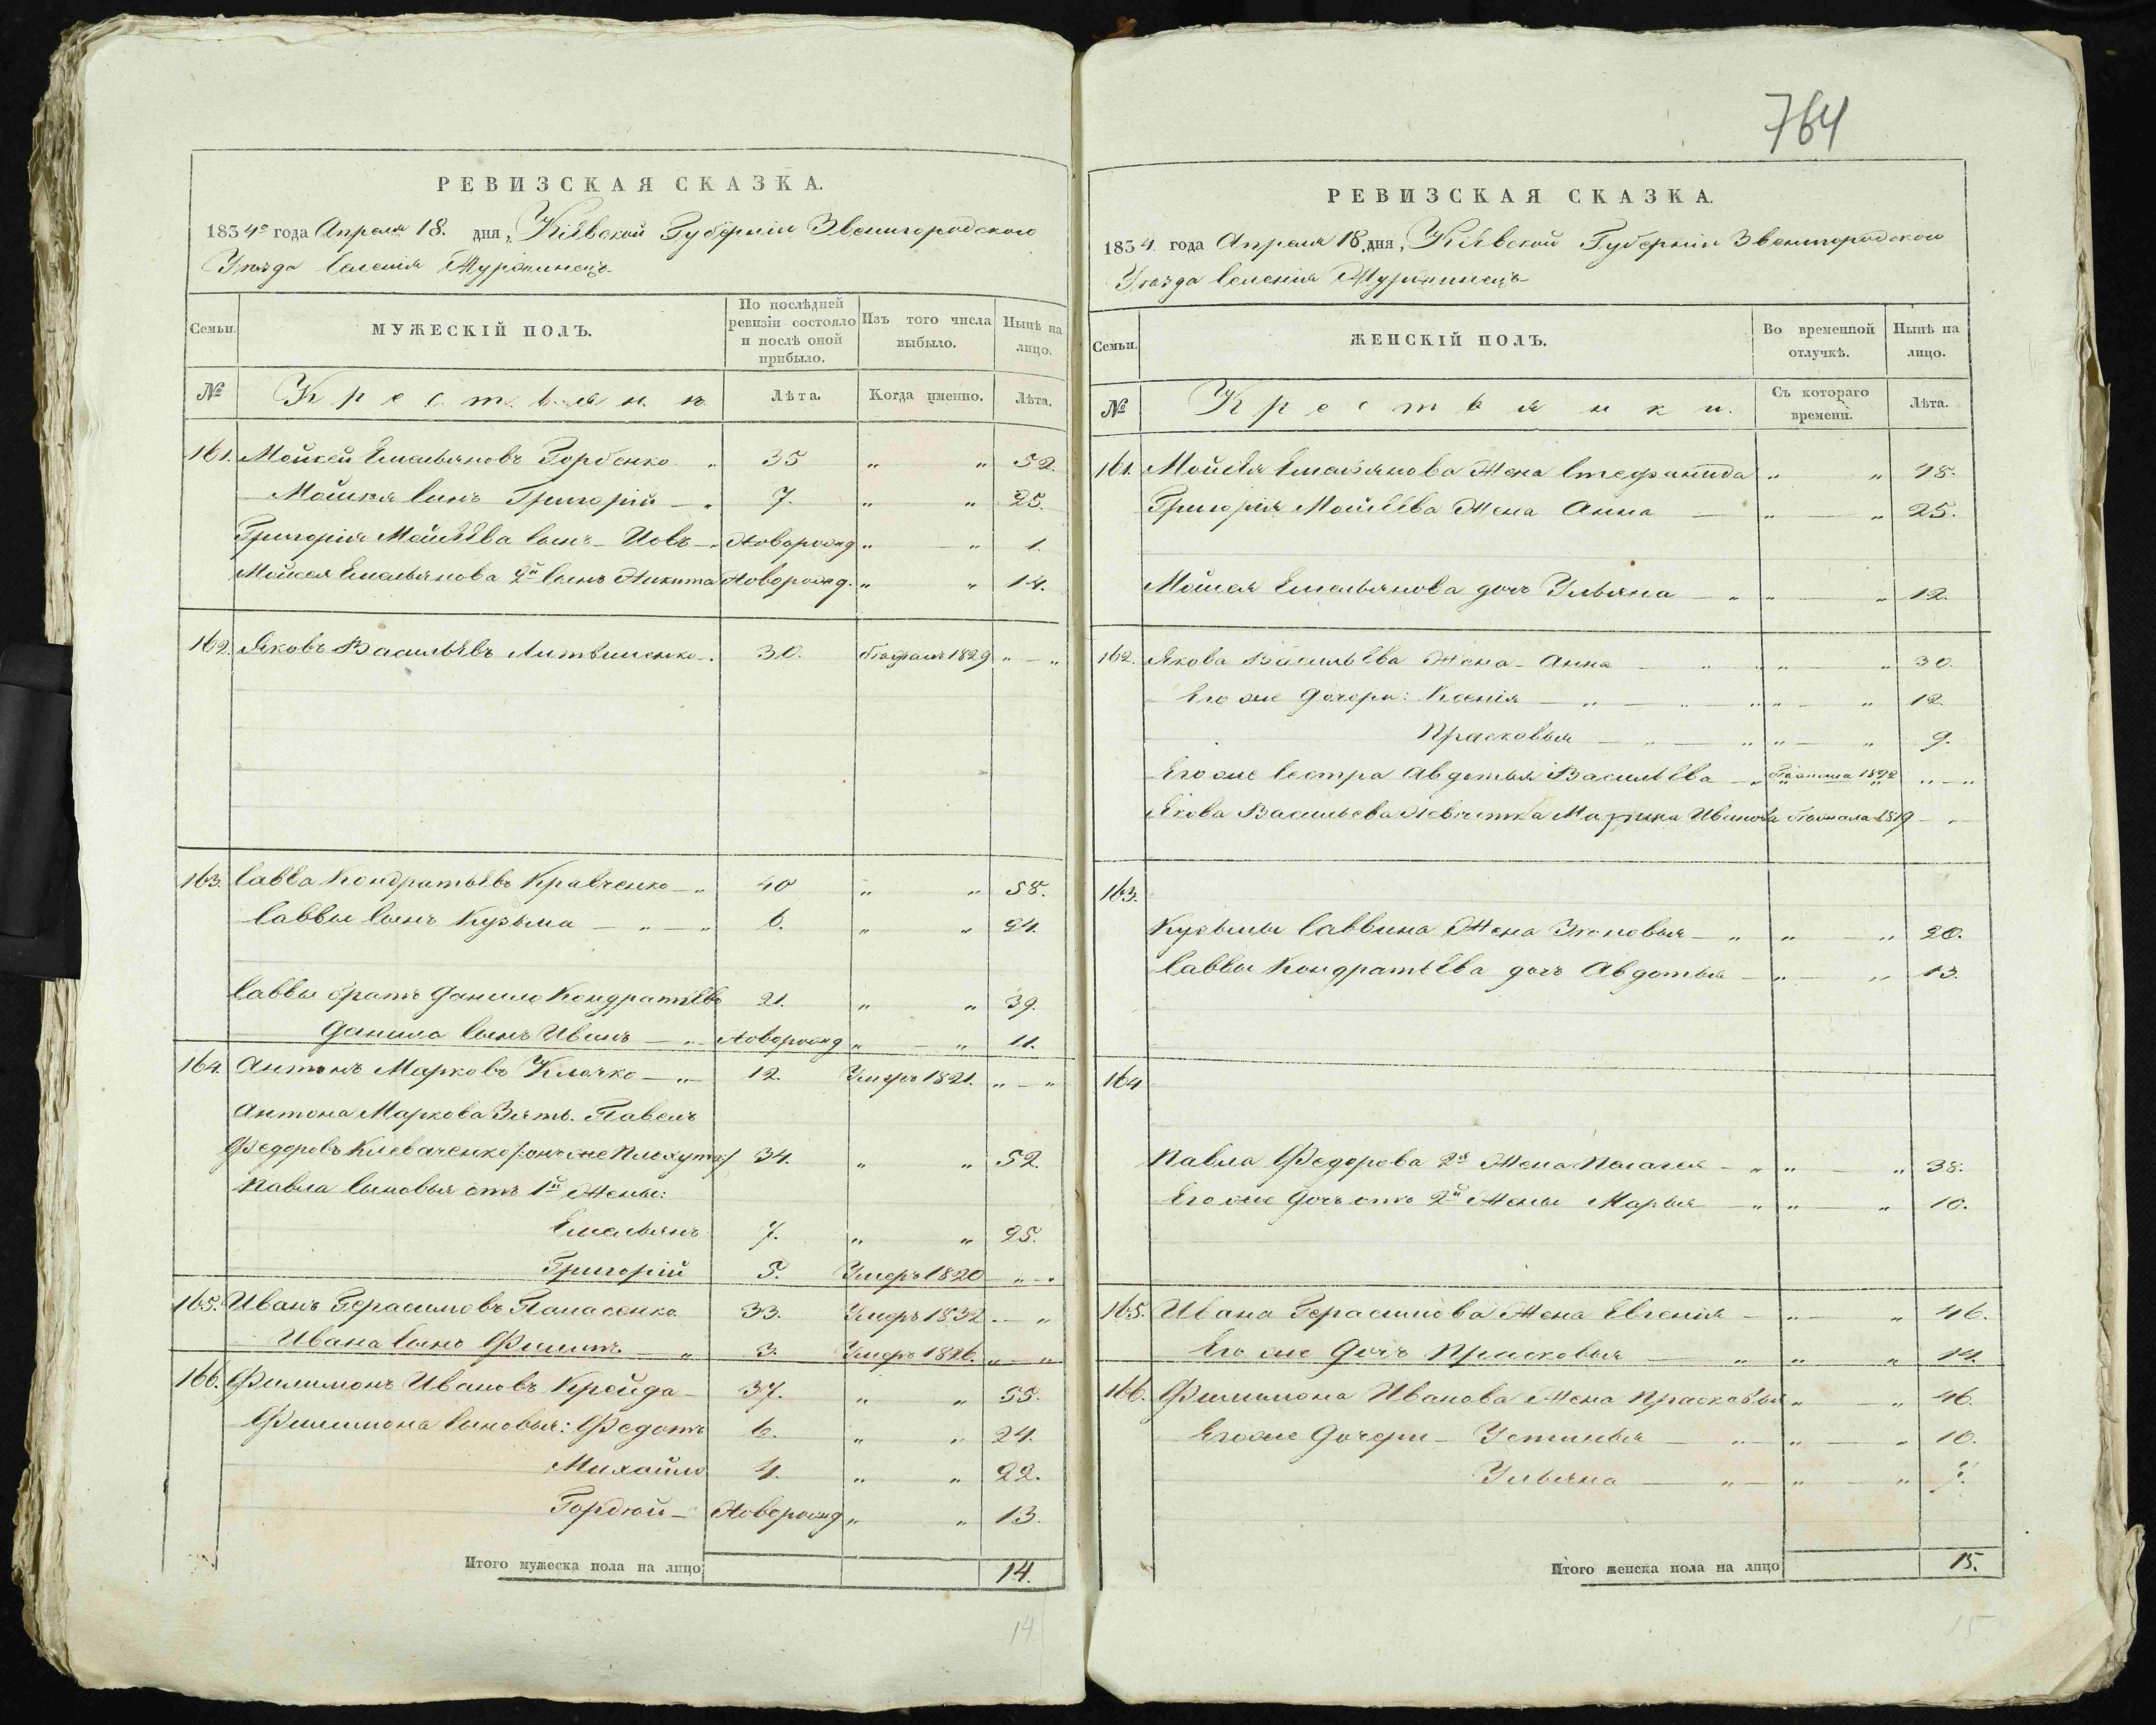 764
РЕВИЗСКАЯ СКАЗКА.
1834го года Апреля 18. дня, Кіевской Губерніи Звенигородского
Уѣзда Селенія Журжинецъ
Семьи.
МУЖЕСКІЙ ПОЛЪ.
По послѣдней ревизіи состояло и послѣ оной прибыло.
Изъ того числа выбыло.
Нынѣ на лицо.
№ Крестьянъ Лѣта. Когда именно. Лѣта.
161. Мойсей Емельяновъ Горбенко „ 35 „ „ 52.
Мойсея Сынъ Григорій — „ 7. „ „ 25.
Григорія Мойсѣева Сынъ — Иовъ — „ Новорожд „ „ 1.
Мойсея Емельянова 2й Сынъ Никита Новорожд. „ „ 14.
162. Яковъ Васильѣвъ Литвиненко . 30. бѣжалъ 1829 „ — „
163. Савва Кондратьѣвъ Кравченко — „ 40 „ „ 58.
Саввы Сынъ Кузьма — „ — „ 6. „ „ 24.
Саввы братъ Данило Кондратьѣвъ 21. „ „ 39.
Данила Сынъ Иванъ — „ Новорожд „ — „ 11.
164. Антонъ Марковъ Клочко — „ 12. Умеръ 1821. „ — „
Антона Маркова Зять. Павелъ
Федоровъ Клеваченко /: онъ же Плахута :/ 34. „ „ 52.
Павла Сыновья отъ 1й Жены:
Емельянъ 7. „ „ 25.
Григорій 5. Умеръ 1820 — „ — „
165. Иванъ Герасимовъ Панасенко 33. Умеръ 1832 . — „
Ивана Сынъ Филипъ — „ 3. Умеръ 1826. „ — „
166. Филимонъ Ивановъ Крейда — 37. „ „ 55.
Филимона Сыновья: Федотъ 6. „ „ 24.
Михайло 4. „ „ 22.
Гордюй — Новорожд „ „ 13.
Итого мужеска пола на лицо 14.
14
РЕВИЗСКАЯ СКАЗКА.
1834. года Апреля 18. дня, Кіевской Губерніи Звенигородского
Уѣзда Селенія Журжинецъ
Семьи.
ЖЕНСКІЙ ПОЛЪ.
Во временной отлучкѣ.
Нынѣ на лицо.
№ Крестьянки. Съ котораго времени. Лѣта.
161. Мойсѣя Емельянова Жена Стефанида „ „ 48.
Григорія Мойсѣева Жена Анна — „ — „ 25.
Мойсея Емельянова дочь Ульяна — „ „ — „ 12.
162. Якова Васильѣва Жена — Анна — „ „ „ 30.
Его же Дочери: Ксенія — „ — „ — „ „ — „ 12.
Прасковья — „ — „ „ — „ 9.
Его же Сестра Авдотья Васильѣва — „ 1822 „ — „
Якова Васильева Невѣстка Марина Иванова бѣжала 1819 — „
163.
Кузьмы Саввина Жена Зѣновья — „ „ — „ 20.
Саввы Кондратьѣва дочь Авдотья — „ — „ 13.
164
Павла Федорова 2я Жена Пелагея — „ „ — „ 38.
Его же Дочь отъ 2й Жены Марья — „ „ — „ 10.
165. Ивана Герасимова Жена Евгенія — „ — „ 46.
Его же Дочь Прасковья — „ „ „ 14.
166. Филимона Иванова Жена Прасковья „ — „ 46.
Его же Дочери — Устинья — „ — „ — „ 10.
Ульяна — „ — „ — „ 7.
Итого женска пола на лицо 15.
15